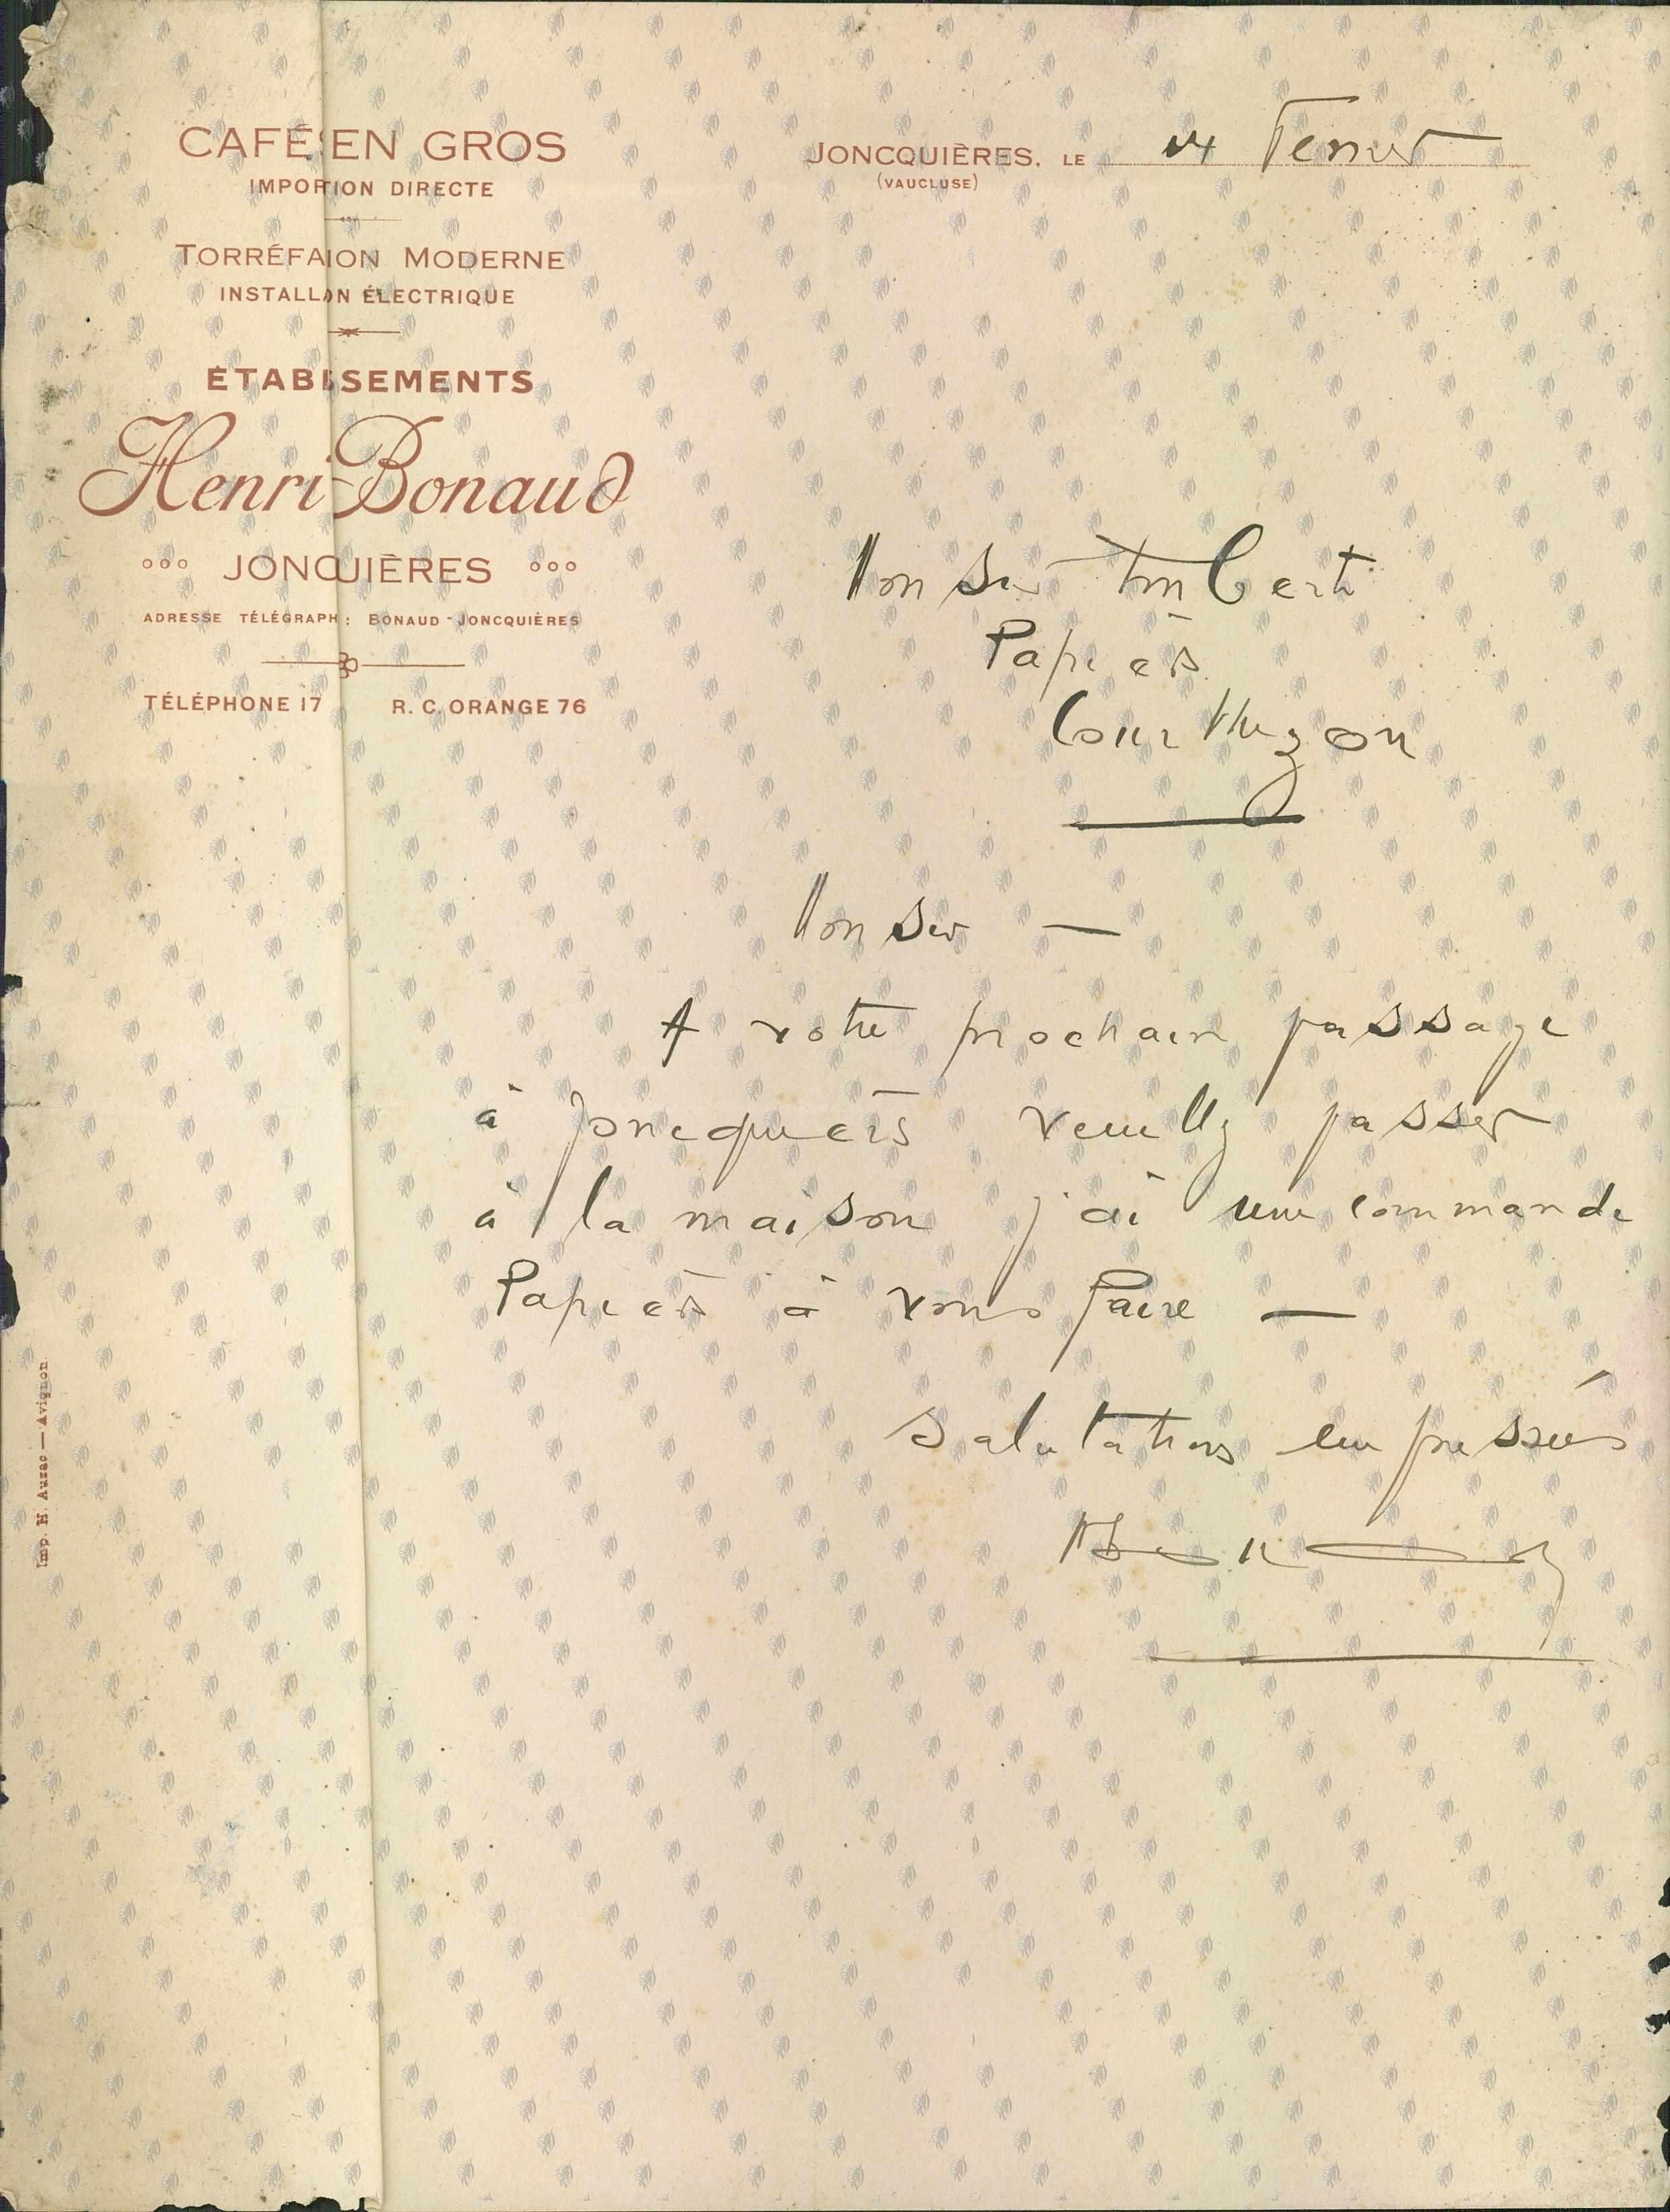 CAFÉ EN GROS
IMPORTION DIRECTE
TORRÉFAION MODERNE
INSTALLN ÉLECTRIQUE
ÉTABLSEMENTS
Henri-Bonaud
°°° JONQUIÈRES °°°
ADRESSE TÉLÉGRAPH: BONAUD-JONCQUIÈRES
TÉLÉPHONE 17 R. C. ORANGE 76
JONCQUIÈRES, LE Fevrier
(VAUCLUSE)
Monsieur Imbert
Papiers
Courthezon
Monsieur —
A votre prochain passage
à Joncquieres veuillez passer
à la maison j'ai une commande
Papiers à vous faire —
Salutations empressées
Bonaud
Imp. H. Auzac — Avignon